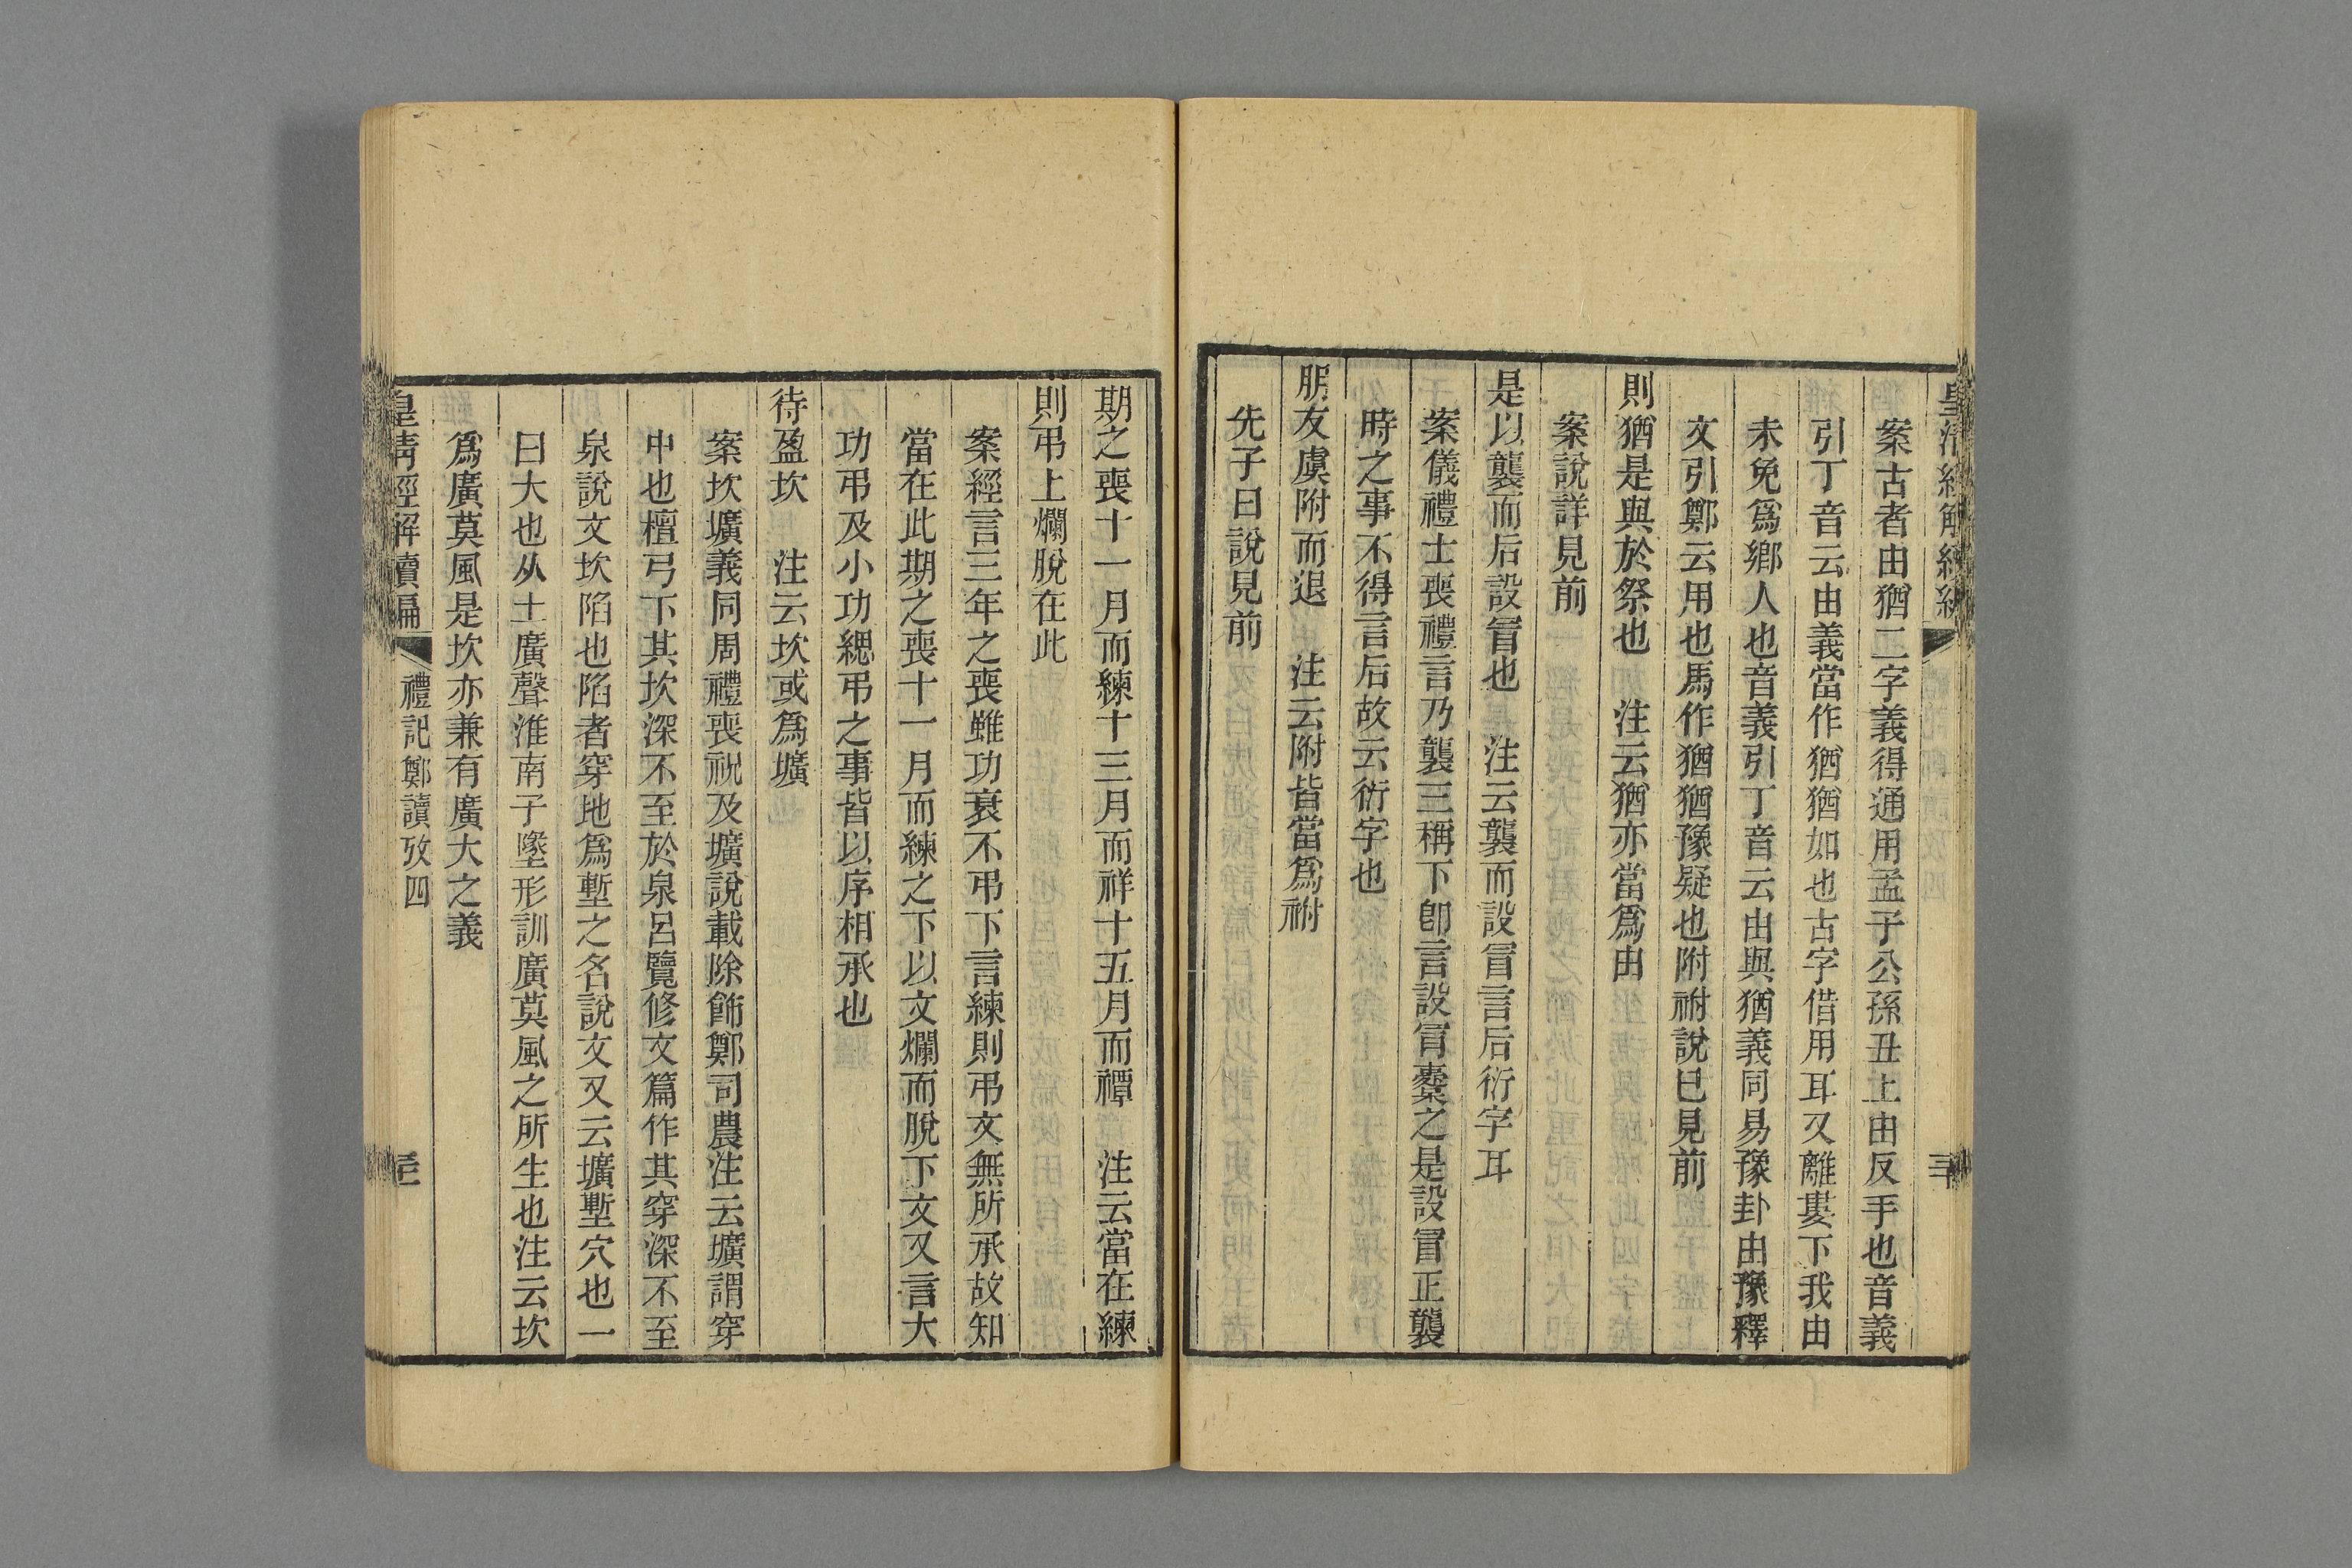 案古者由猶二字義得通用孟子公孫丑上由反手也音義
引丁音云由義當作猶猶如也古字借用耳又離婁下我由
未免爲鄉人也音義引丁音云由與猶義同易豫卦由豫釋
文引鄭云用也馬作猶猶豫疑也附祔說已見前
則猶是與於祭也　注云猶亦當爲由
案說詳見前
是以襲而后設冒也　注云襲而設冒言后衍字耳
案儀禮士喪禮言乃襲三稱下卽言設冒櫜之是設冒正襲
時之事不得言后故云衍字也
朋友虞附而退　注云附皆當爲祔
先子曰說見前
期之喪十一月而練十三月而祥十五月而禫　注云當在練
則弔上爛脫在此
案經言三年之喪雖功衰不弔下言練則弔文無所承故知
當在此期之喪十一月而練之下以文爛而脫下文又言大
功弔及小功緦弔之事皆以序相承也
待盈坎　注云坎或爲壙
案坎壙義同周禮喪祝及壙說載除飾鄭司農注云壙謂穿
中也檀弓下其坎深不至於泉呂覽修文篇作其穿深不至
泉說文坎陷也陷者穿地爲塹之名說文又云壙塹穴也一
曰大也从土廣聲淮南子墬形訓廣莫風之所生也注云坎
爲廣莫風是坎亦兼有廣大之義
皇清經解續編
禮記鄭讀攷四